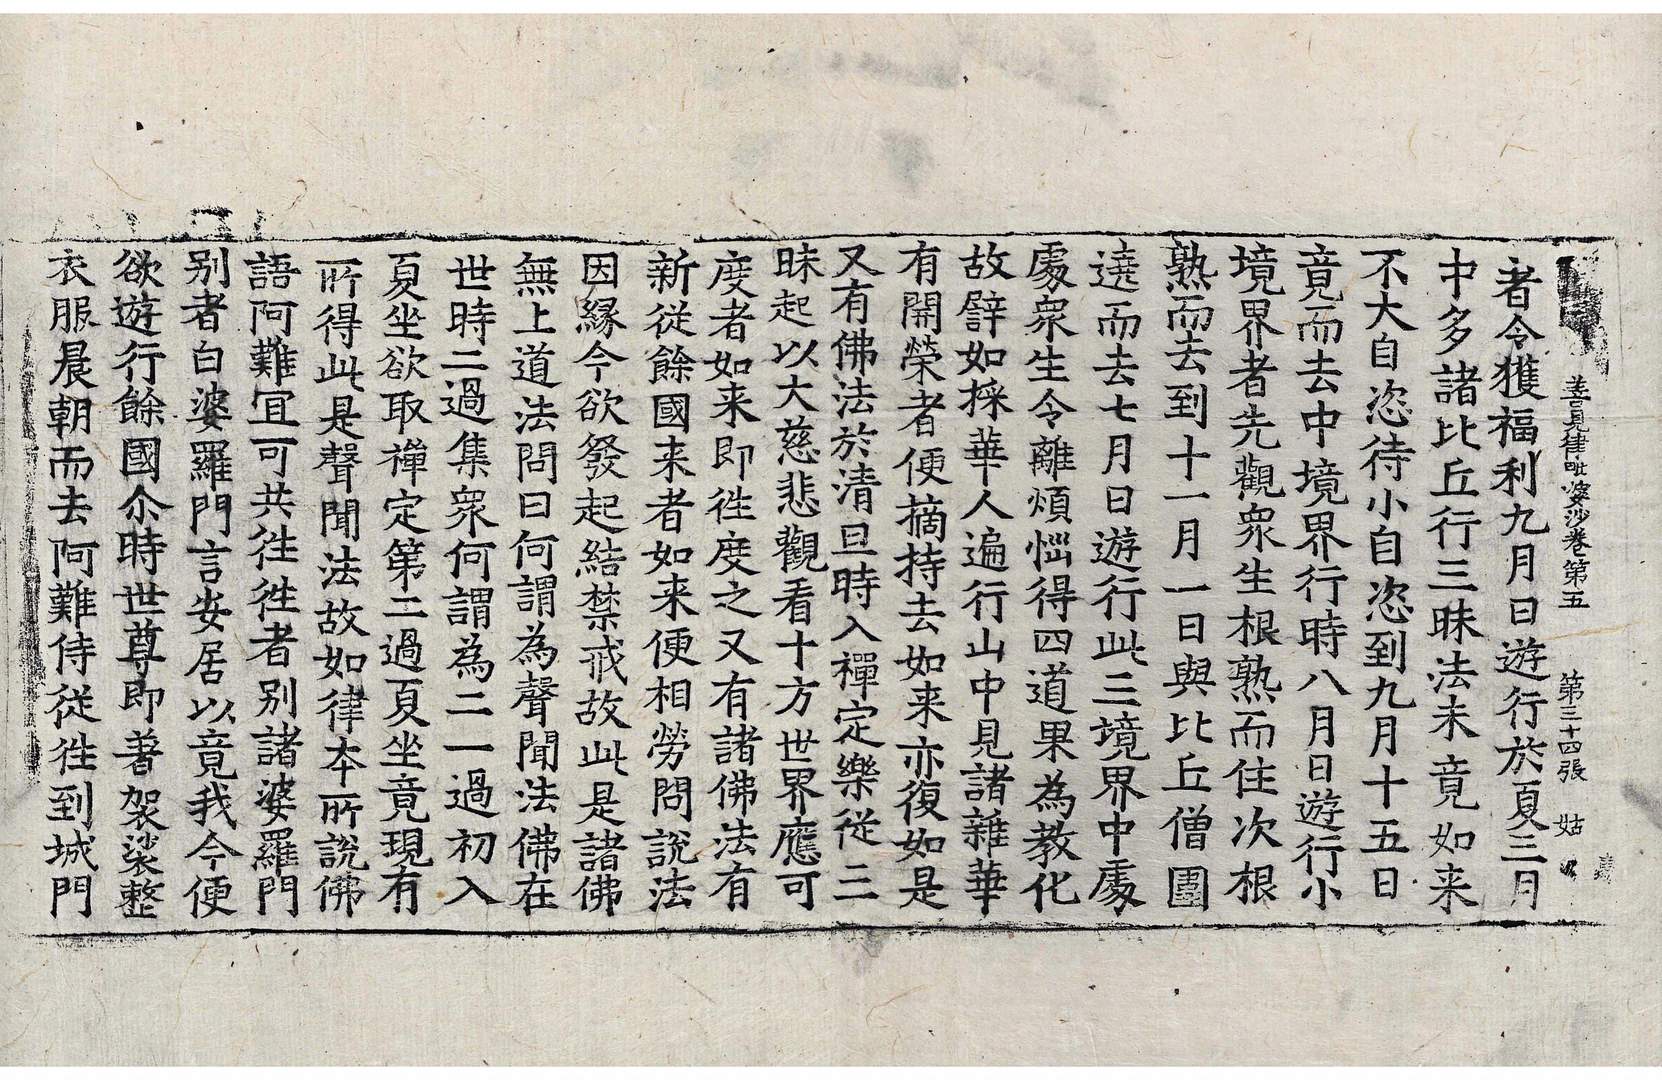 善見律毗婆沙卷第五　第三十四張　姑
者令獲福利九月日遊行於夏三月
中多諸比丘行三昧法未竟如来
不大自恣待小自恣到九月十五日
竟而去中境界行時八月日遊行小
境界者先觀衆生根熟而住次根
熟而去到十一月一日與比丘僧圍
遶而去七月日遊行此三境界中處
處衆生令離煩惱得四道果為教化
故譬如採華人遍行山中見諸雜華
有開榮者便摘持去如来亦復如是
又有佛法於清旦時入禪定樂從三
昧起以大慈悲觀看十方世界應可
度者如来即徃度之又有諸佛法有
新從餘國来者如来便相勞問說法
因緣今欲發起結禁戒故此是諸佛
無上道法問曰何謂為聲聞法佛在
世時二過集衆何謂為二一過初入
夏坐欲取禪定第二過夏坐竟現有
所得此是聲聞法故如律夲所說佛
語阿難宜可共徃徃者別諸婆羅門
別者白婆羅門言安居以竟我今便
欲遊行餘國尒時世尊即著袈裟整
衣服晨朝而去阿難侍從徃到城門